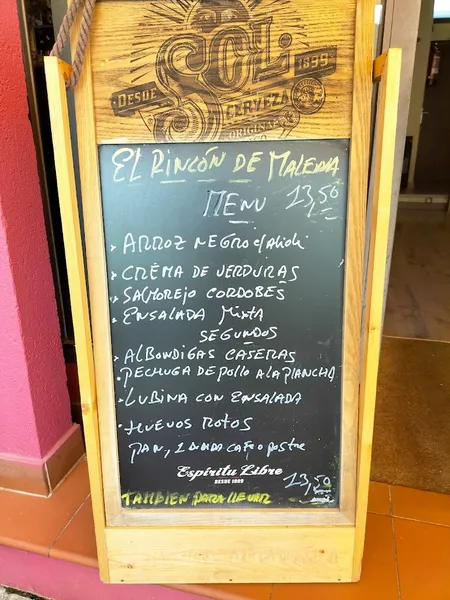 SOL
DESDE 1899
CERVEZA
ORIGINAL
EL RINCÓN DE MALENA
MENU 13,50
ARROZ NEGRO c/ alioli
CRÉMA DE VERDURAS
SALMOREJO CORDOBÉS
ENSALADA MIXTA
SEGUNDOS
ALBONDIGAS CASERAS
PECHUGA DE POLLO A LA PLANCHA
LUBINA CON ENSALADA
HUEVOS ROTOS
PAN, 1 BEBIDA CAFE o postre
Espíritu Libre
DESDE 1899
13,50
TAMBIEN PARA LLEVAR